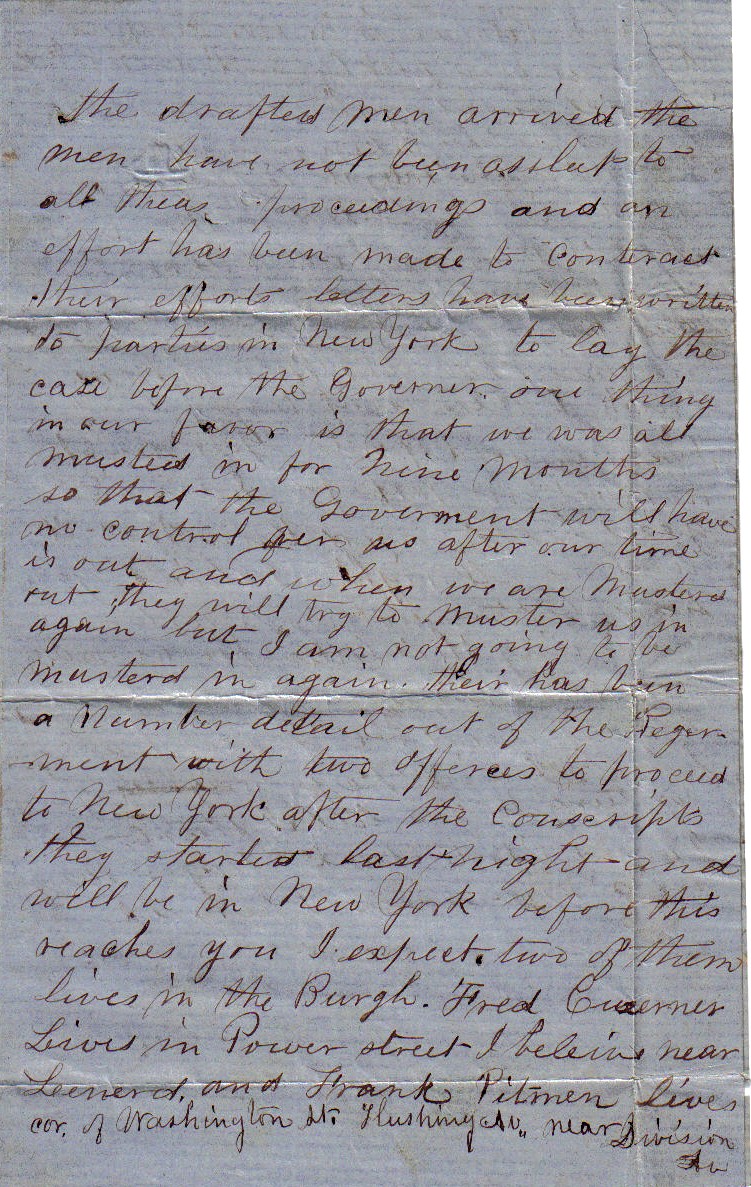 the drafted men arrived the
men have not been asleep to
all theas proceedings and an
effort has been made to conteract
their efforts letters have been written
to parties in New York to lay the
case before the Governer. one thing
in our favor is that we was all
musted in for Nine Months
so that the Goverment will have
no control over us after our time
is out and when we are Musterd
out they will try to muster us in
again but I am not going to be
musterd in again. their has been
a Number detail out of the Reger-
ment with two officers to proceed
to New York after the Conscripts
they started last night and
will be in New York before this
reaches you I expect. two of them
lives in the Burgh. Fred
Lives in Power street I beleive near
Leenerd, and Frank Pitmen lives
cor. of Washington St Flushing Av, near Division
Av